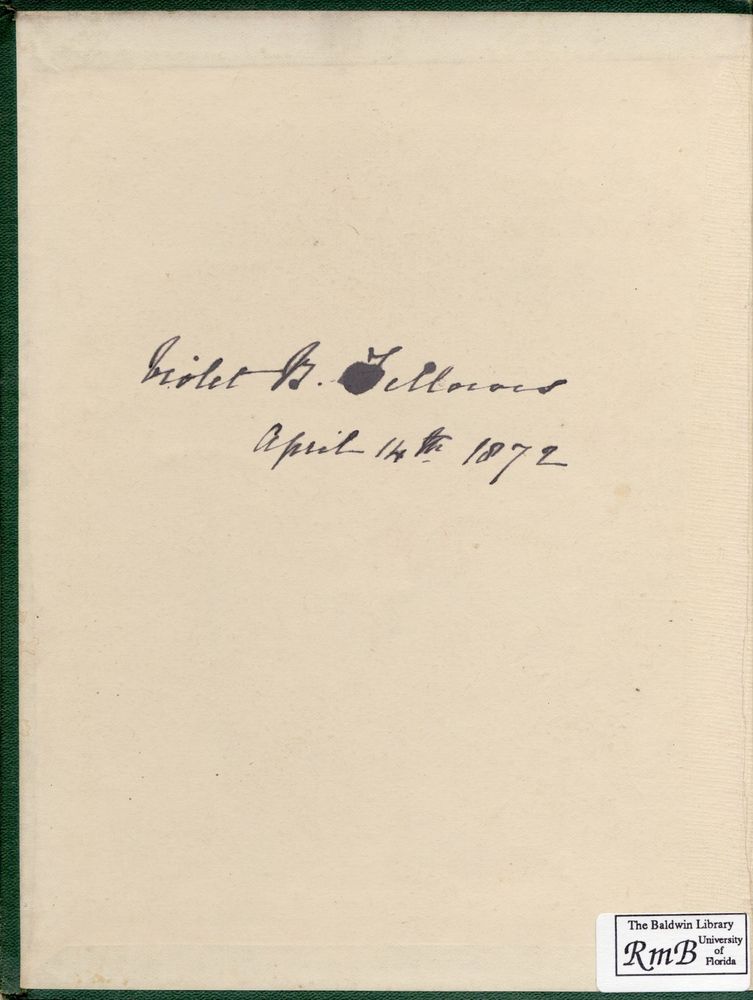 Violet B. Fellowes
April 14th 1872
The Baldwin Library
RmB University
of
Florida